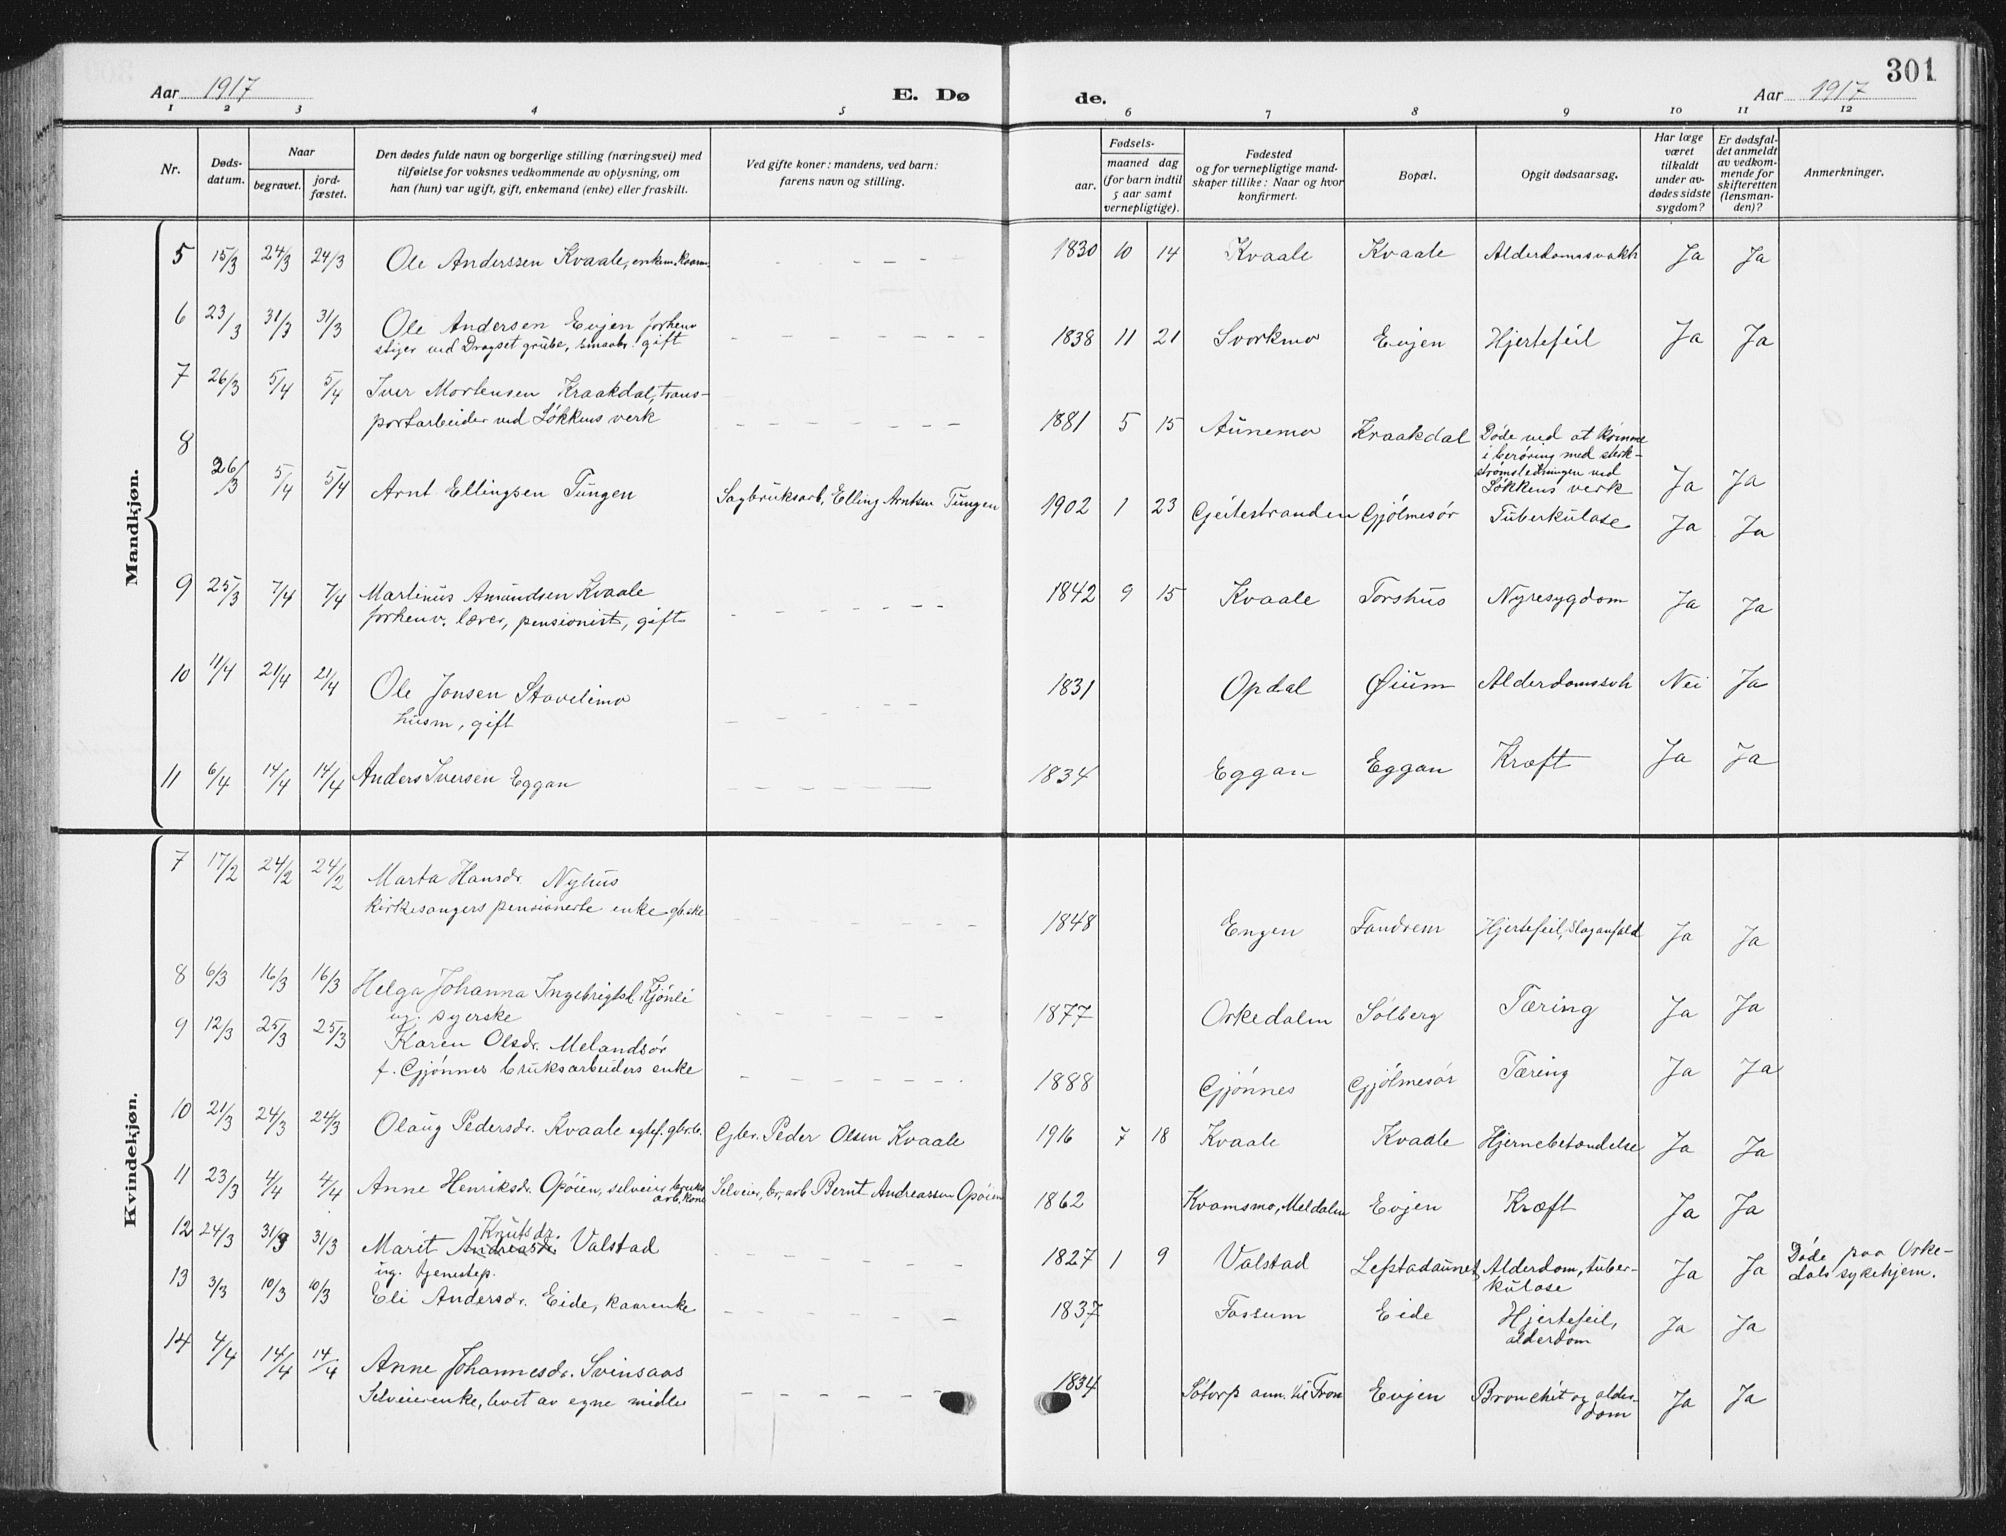 301
Aar 1917 E. Dø de. Aar 1917
1 2 3 4 5 6 7 8 9 10 11 12
Nr.
Døds-
datum.
Naar
begravet.
jord-
fæstet.
Den dødes fulde navn og borgerlige stilling (næringsvei) med
tilføielse for voksnes vedkommende av oplysning, om
han (hun) var ugift, gift, enkemand (enke) eller fraskilt.
Ved gifte koner: mandens, ved barn:
farens navn og stilling.
Fødsels-
aar.
maaned dag
(for barn indtil
5 aar samt
vernepligtige).
Fødested
og for vernepligtige mand-
skaper tillike: Naar og hvor
konfirmert.
Bopæl.
Opgit dødsaarsag.
Har læge
været
tilkaldt
under av-
dødes sidste
sygdom?
Er dødsfal-
det anmeldt
av vedkom-
mende for
skifteretten
(lensman-
den)?
Anmerkninger.
Mandkjøn.
5 15/3 24/3 24/3 Ole Anderssen Kvaale, enkem. 1830 10 14 Kvaale Kvaale Alderdomssvakh Ja Ja
6 23/3 31/3 31/3 Ole Andersen Evjen forhenv
stiger ved Dragset grube, smaabr. gift 1838 11 21 Svorkmo Evjen Hjertefeil Ja Ja
7 26/3 5/4 5/4 Iver Mortensen Kraakdal, trans-
portarbeider ved Løkkens verk 1881 5 15 Aunemo Kraakdal Døde ved at komme
i berøring med sterk-
strømsledningen ved
Løkkens verk Ja Ja
8 26/3 5/4 5/4 Arnt Ellingsen Tungen Sagbruksarb. Elling Arntsen Tungen 1902 1 23 Geitestranden Gjølmesør Tuberkulose Ja Ja
9 25/3 7/4 7/4 Martinus Amundsen Kvaale
forhenv. lærer, pensionist, gift 1842 9 15 Kvaale Torshus Nyresygdom Ja Ja
10 11/4 21/4 21/4 Ole Jonsen Stavelimo
husm, gift 1831 Opdal Øium Alderdomssvh Nei Ja
11 6/4 14/4 14/4 Anders Iversen Eggan 1834 Eggan Eggan Kræft Ja Ja
Kvindekjøn.
7 17/2 24/2 24/2 Marta Hansdr. Nyhus
kirkesangers pensionerte enke 1848 Engen Fandrem Hjertefeil, Slaganfald Ja Ja
8 6/3 16/3 16/3 Helga Johanna Ingebrigtsd. Kjönli
ug. syerske 1877 Orkedalen Solberg Tæring Ja Ja
9 12/3 25/3 25/3 Karen Olsdr. Melandsør
f. Gjønnes bruksarbeiders enke 1888 Gjønnes Gjølmesør Tæring Ja Ja
10 21/3 24/3 24/3 Olaug Pedersdr. Kvaale egtef. gbr.b. Gbr. Peder Olsen Kvaale 1916 7 18 Kvaale Kvaale Hjernebetændelse Ja Ja
11 23/3 4/4 4/4 Anne Henriksdr. Opøien, selveier bruks
arb. kone Selveier, br, arb Bernt Andreassen Opøien 1862 Kvamsmo, Meldalen Evjen Kræft Ja Ja
12 24/3 31/3 31/3 Knutsdr.
Marit Andreasdr. Valstad
ug. tjenestep. 1827 1 9 Valstad Lefstadaunet Alderdom, tuber-
kulose Ja Ja Døde paa Orke-
dals sykehjem.
13 3/3 10/3 10/3 Eli Andersdr. Eide, kaarenke 1837 Fossum Eide Hjertefeil,
alderdom Ja Ja
14 4/4 14/4 14/4 Anne Johannesdr. Svinsaas
Selveierenke, levet av egne midler 1834 Sötorp ann. til Fron Evjen Bronchit og alder-
dom Ja Ja